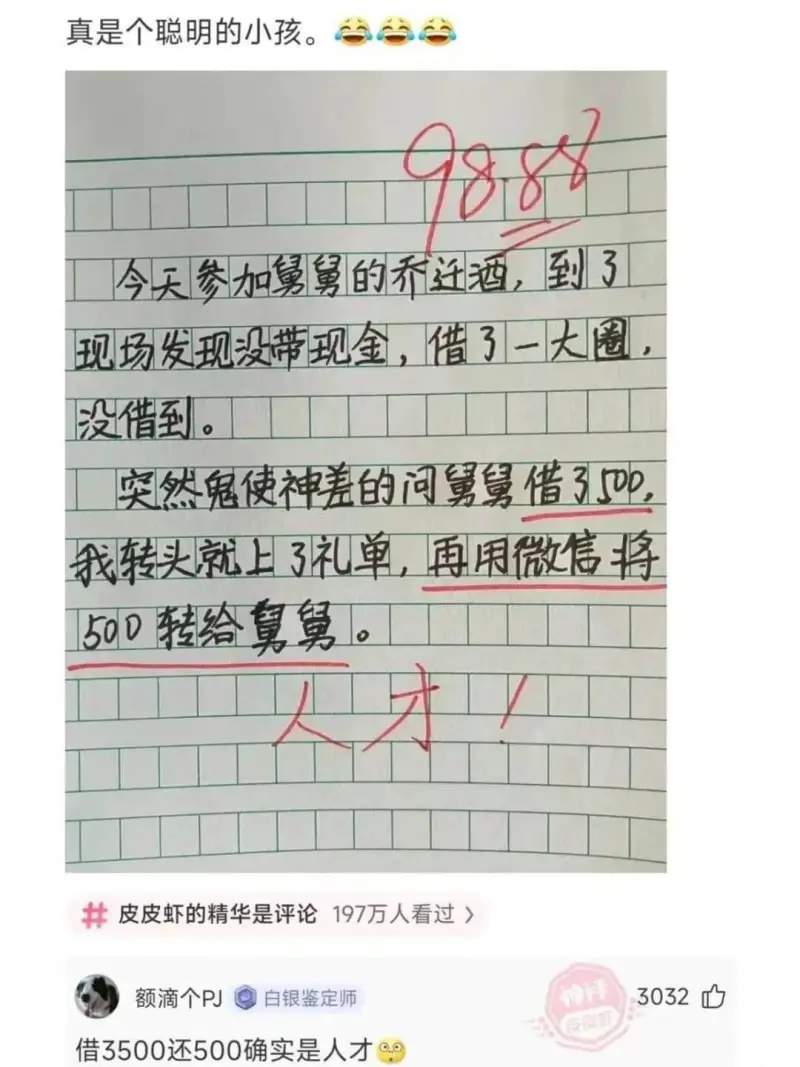 真是个聪明的小孩。😂😂😂
98.88
今天参加舅舅的乔迁酒，到了
现场发现没带现金，借了一大圈，
没借到。
突然鬼使神差的问舅舅借了500，
我转头就上了礼单，再用微信将
500转给舅舅。
人才！
# 皮皮虾的精华是评论 197万人看过 >
额滴个PJ 白银鉴定师
神评
3032
借3500还500确实是人才🙄